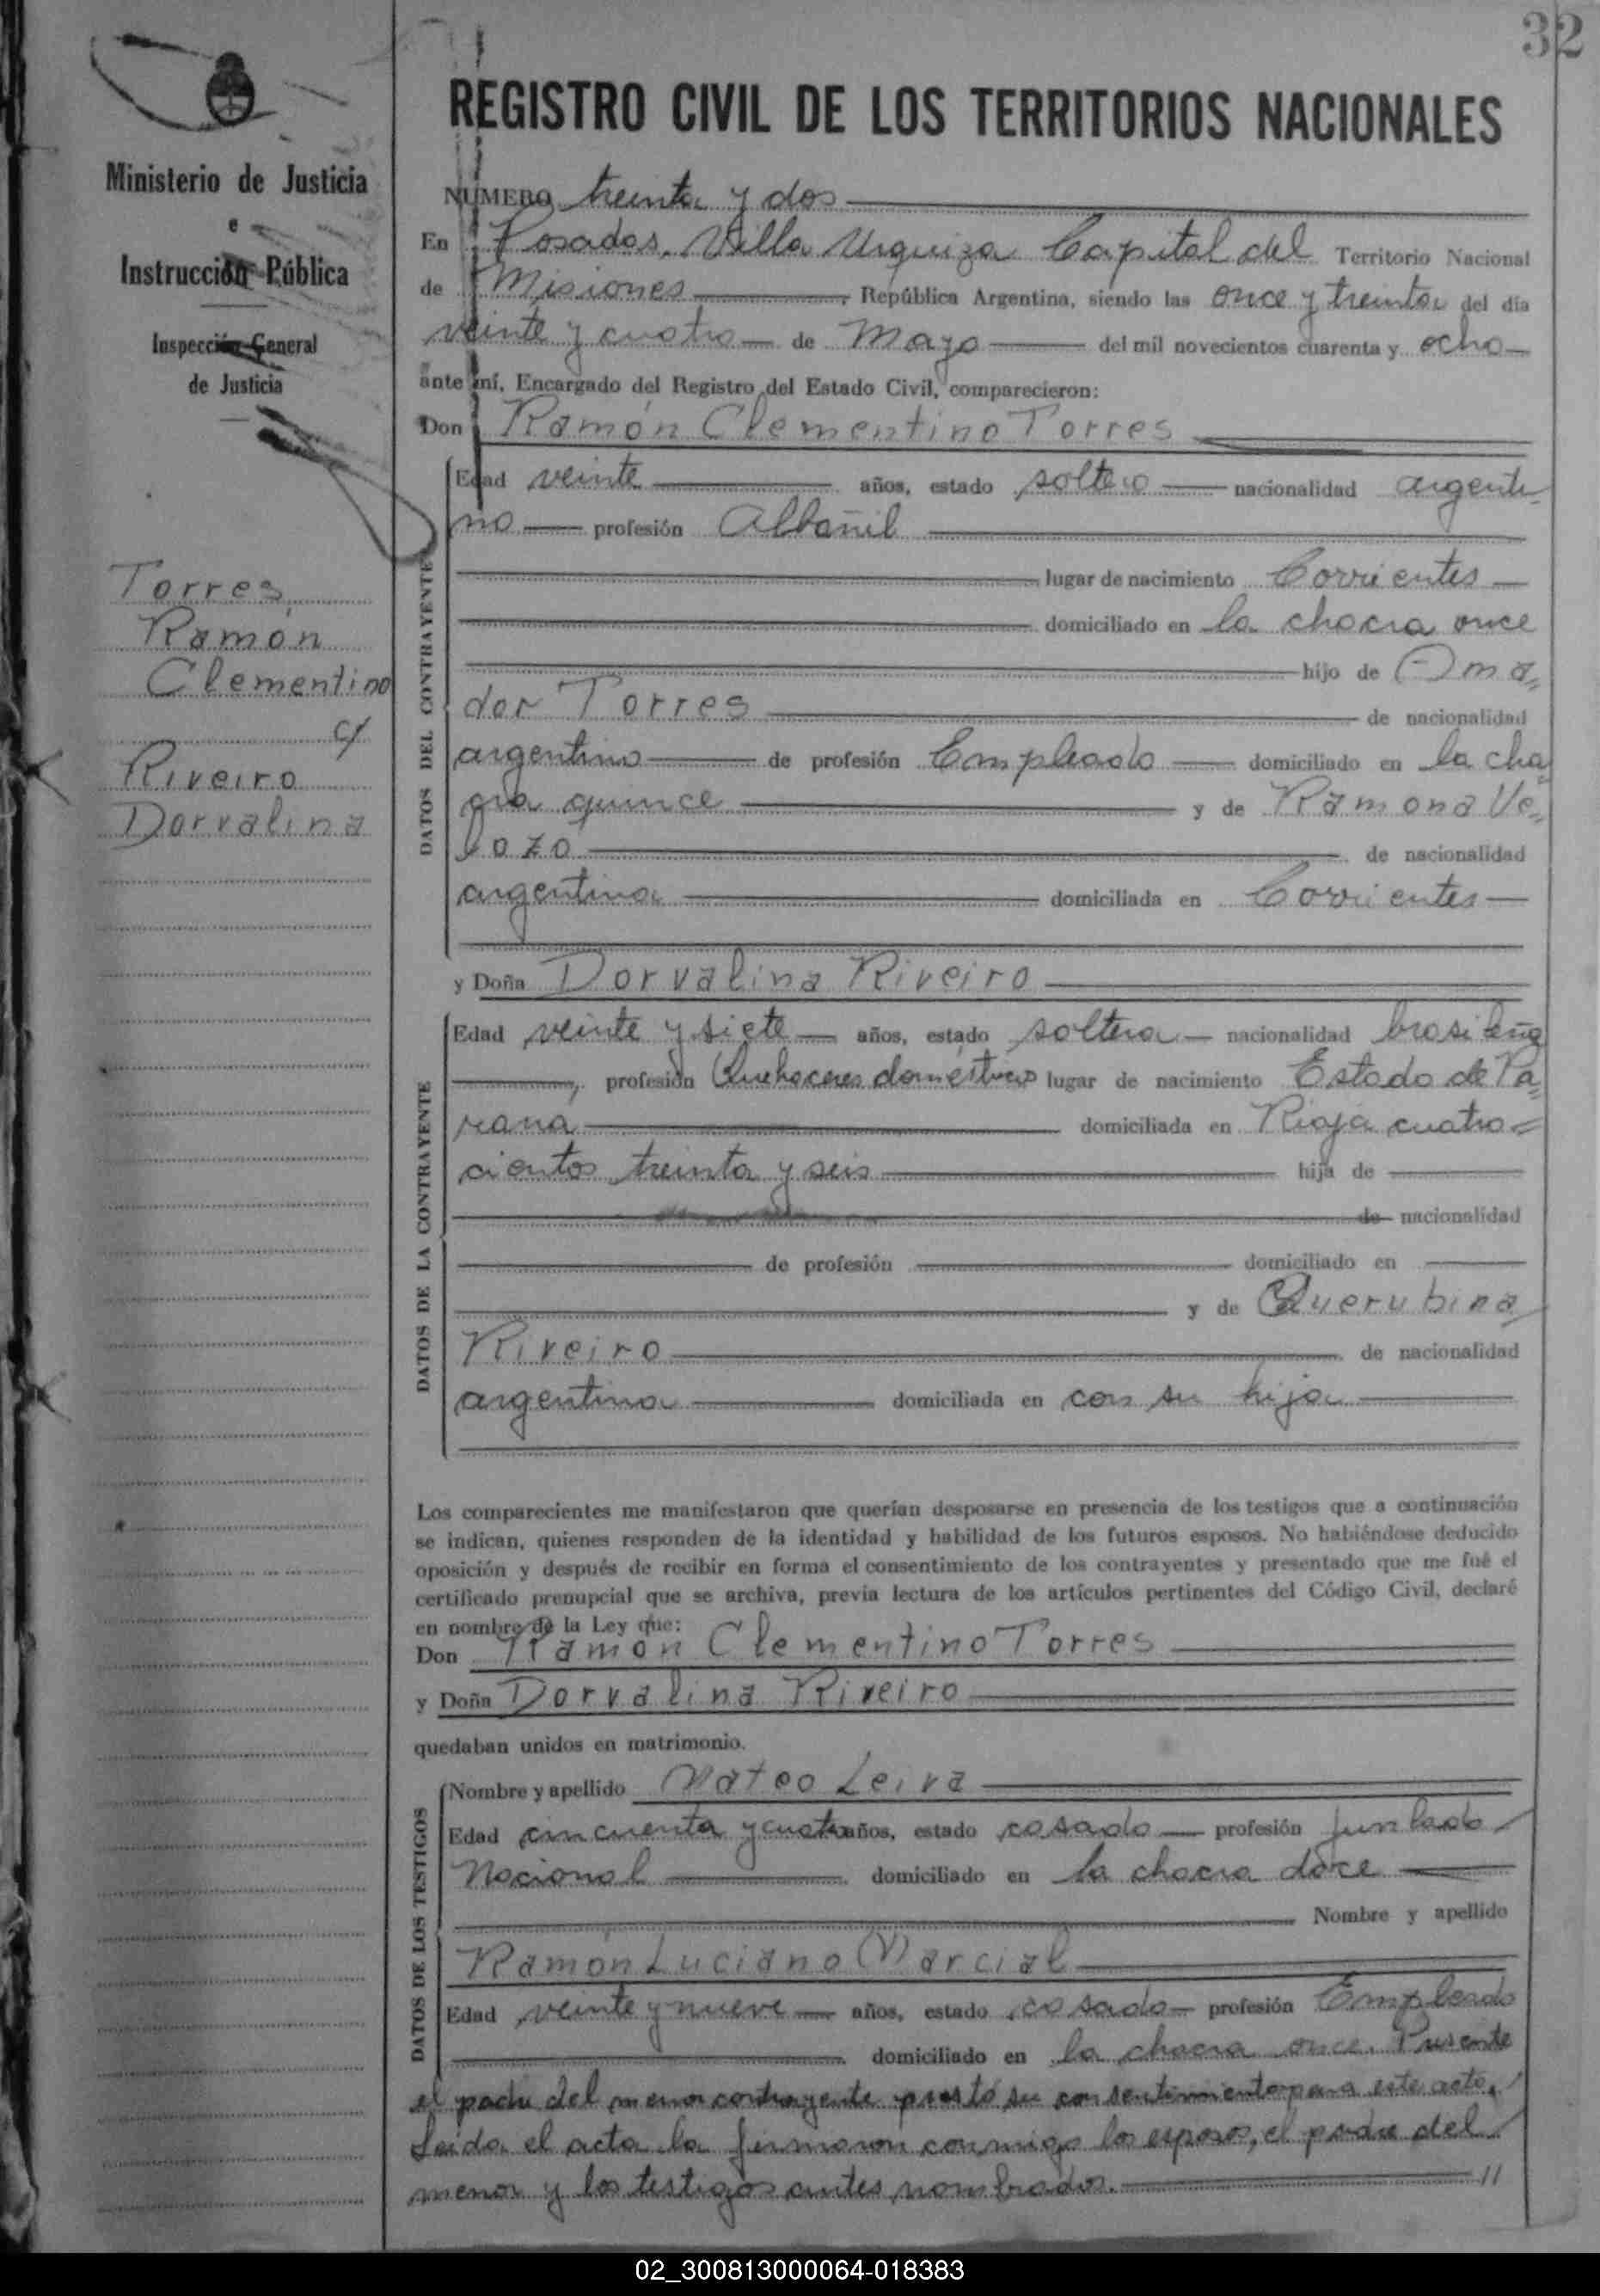 32
REGISTRO CIVIL DE LOS TERRITORIOS NACIONALES
Ministerio de Justicia
e
Instrucción Pública
Inspección General
de Justicia
NÚMERO treinta y dos
En Posadas, Villa Urquiza Capital del Territorio Nacional
de Misiones, República Argentina, siendo las once y treinta del día
veinte y cuatro de Mayo del mil novecientos cuarenta y ocho
ante mí, Encargado del Registro del Estado Civil, comparecieron:
Don Ramón Clementino Torres
Torres
Ramón
Clementino
c/
Riveiro
Dorvalina
DATOS DEL CONTRAYENTE
Edad veinte años, estado soltero nacionalidad argenti-
no profesión Albañil
lugar de nacimiento Corrientes
domiciliado en la chacra once
hijo de Ama=
dor Torres de nacionalidad
argentino de profesión Empleado domiciliado en la cha=
cra quince y de Ramona Ve=
lozo de nacionalidad
argentina domiciliada en Corrientes
y Doña Dorvalina Riveiro
DATOS DE LA CONTRAYENTE
Edad veinte y siete años, estado soltera nacionalidad brasileña
, profesión Quehaceres domésticos lugar de nacimiento Estado de Pa=
rana domiciliada en Rioja cuatro=
cientos treinta y seis hija de
de nacionalidad
de profesión domiciliado en
y de Querubina
Riveiro de nacionalidad
argentina domiciliada en con su hija
Los comparecientes me manifestaron que querían desposarse en presencia de los testigos que a continuación
se indican, quienes responden de la identidad y habilidad de los futuros esposos. No habiéndose deducido
oposición y después de recibir en forma el consentimiento de los contrayentes y presentado que me fué el
certificado prenupcial que se archiva, previa lectura de los artículos pertinentes del Código Civil, declaré
en nombre de la Ley que:
Don Ramón Clementino Torres
y Doña Dorvalina Riveiro
quedaban unidos en matrimonio.
DATOS DE LOS TESTIGOS
Nombre y apellido Mateo Leiva
Edad cincuenta y cuatro años, estado casado profesión Jubilado
Nacional domiciliado en la chacra doce
Nombre y apellido
Ramón Luciano Marcial
Edad veinte y nueve años, estado casado profesión Empleado
domiciliado en la chacra once. Presente
el padre del menor contrayente prestó su consentimiento para este acto.
Leída el acta la firmaron conmigo los esposos, el padre del
menor y los testigos antes nombrados.
02_300813000064-018383